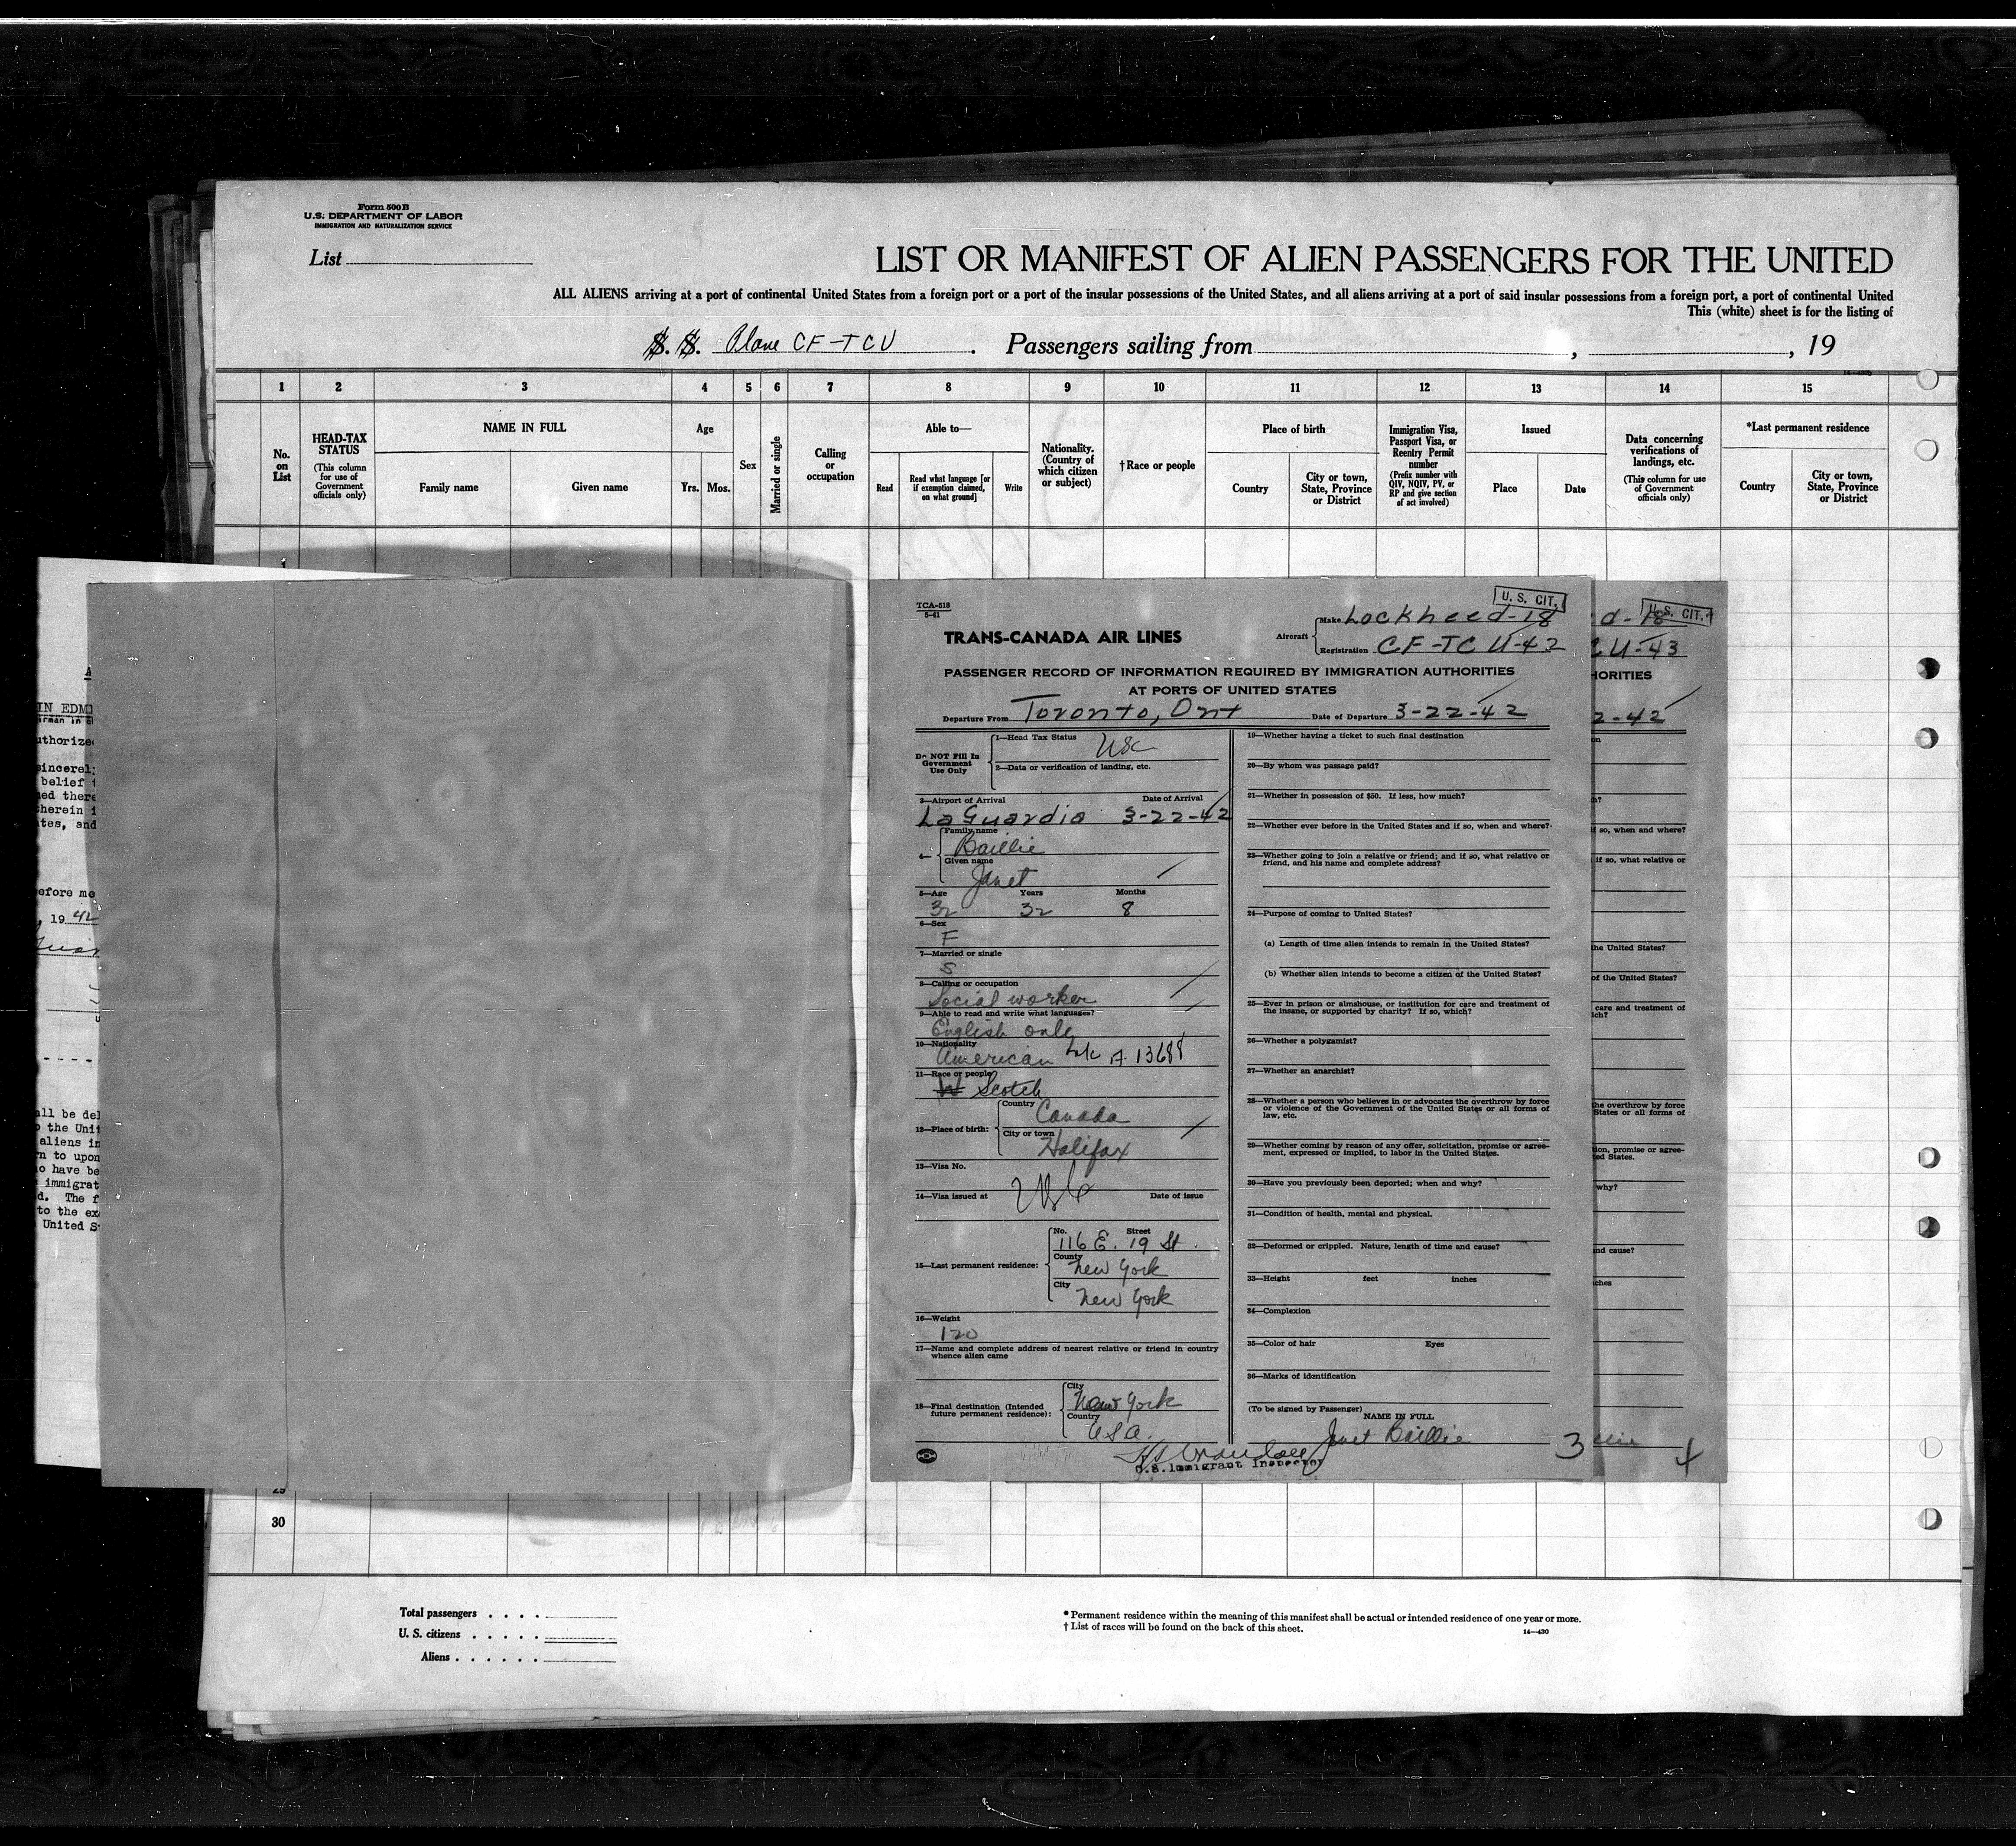 Form 500B
U.S. DEPARTMENT OF LABOR
IMMIGRATION AND NATURALIZATION SERVICE
List
LIST OR MANIFEST OF ALIEN PASSENGERS FOR THE UNITED
ALL ALIENS arriving at a port of continental United States from a foreign port or a port of the insular possessions of the United States, and all aliens arriving at a port of said insular possessions from a foreign port, a port of continental United
This (white) sheet is for the listing of
S. S. Plane CF-TCU. Passengers sailing from , , 19
1 2 3 4 5 6 7 8 9 10 11 12 13 14 15
No. on List
HEAD-TAX STATUS
(This column for use of Government officials only)
NAME IN FULL
Family name
Given name
Age
Yrs. Mos.
Sex
Married or single
Calling or occupation
Able to—
Read
Read what language [or if exemption claimed, on what ground]
Write
Nationality. (Country of which citizen or subject)
†Race or people
Place of birth
Country
City or town, State, Province or District
Immigration Visa, Passport Visa, or Reentry Permit number
(Prefix number with QIV, NQIV, PV, or RP and give section of act involved)
Issued
Place
Date
Data concerning verifications of landings, etc.
(This column for use of Government officials only)
*Last permanent residence
Country
City or town, State, Province or District
IN EDM
uthorize
sincerel;
belief
ed there
therein i
tes, and
efore me
, 19 42
all be del
o the Unit
aliens in
n to upon
o have be
immigrat
d. The f
to the ex
United S
TCA-518
5-41
U. S. CIT.
TRANS-CANADA AIR LINES
Aircraft
Make Lockheed-18
Registration CF-TCU-42
PASSENGER RECORD OF INFORMATION REQUIRED BY IMMIGRATION AUTHORITIES
AT PORTS OF UNITED STATES
Departure From Toronto, Ont Date of Departure 3-22-42
Do NOT Fill In Government Use Only
1—Head Tax Status USC
2—Data or verification of landing, etc.
3—Airport of Arrival Date of Arrival
LaGuardia 3-22-42
4—
Family name
Baillie
Given name
Janet
5—Age Years Months
32 32 8
6—Sex
F
7—Married or single
S
8—Calling or occupation
Social worker
9—Able to read and write what languages?
English only
10—Nationality
American A 13688
11—Race or people
W Scotch
12—Place of birth:
Country
Canada
City or town
Halifax
13—Visa No.
14—Visa issued at Date of issue
15—Last permanent residence:
No. Street
116 E. 19 St.
County
New York
City
New York
16—Weight
120
17—Name and complete address of nearest relative or friend in country whence alien came
18—Final destination (Intended future permanent residence):
City
New York
Country
USA.
19—Whether having a ticket to such final destination
20—By whom was passage paid?
21—Whether in possession of $50. If less, how much?
22—Whether ever before in the United States and if so, when and where?
23—Whether going to join a relative or friend; and if so, what relative or friend, and his name and complete address?
24—Purpose of coming to United States?
(a) Length of time alien intends to remain in the United States?
(b) Whether alien intends to become a citizen of the United States?
25—Ever in prison or almshouse, or institution for care and treatment of the insane, or supported by charity? If so, which?
26—Whether a polygamist?
27—Whether an anarchist?
28—Whether a person who believes in or advocates the overthrow by force or violence of the Government of the United States or all forms of law, etc.
29—Whether coming by reason of any offer, solicitation, promise or agreement, expressed or implied, to labor in the United States.
30—Have you previously been deported; when and why?
31—Condition of health, mental and physical.
32—Deformed or crippled. Nature, length of time and cause?
33—Height feet inches
34—Complexion
35—Color of hair Eyes
36—Marks of identification
(To be signed by Passenger)
NAME IN FULL
Janet Baillie
U.S. Immigrant Inspector
3
U. S. CIT.
d-18
CU-43
HORITIES
2-42
on
h?
if so, when and where?
if so, what relative or
the United States?
of the United States?
care and treatment of
ich?
the overthrow by force
States or all forms of
tion, promise or agree-
ed States.
why?
and cause?
ches
4
29
30
Total passengers
U. S. citizens
Aliens
* Permanent residence within the meaning of this manifest shall be actual or intended residence of one year or more.
† List of races will be found on the back of this sheet.
14—430